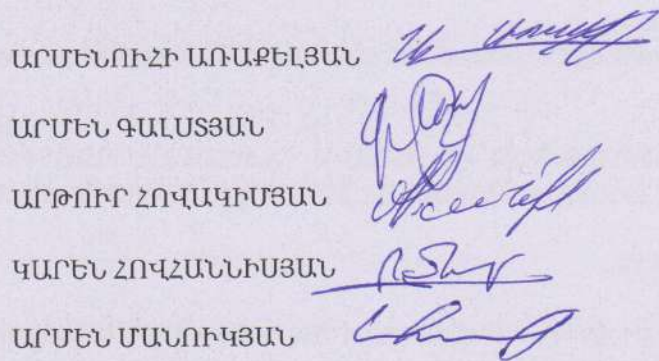 ԱՐՄԵՆՈՒՀԻ ԱՌԱՔԵԼՅԱՆ
ԱՐՄԵՆ ԳԱԼՍՏՅԱՆ
ԱՐԹՈՒՐ ՀՈՎԱԿԻՄՅԱՆ
ԿԱՐԵՆ ՀՈՎՀԱՆՆԻՍՅԱՆ
ԱՐՄԵՆ ՄԱՆՈՒԿՅԱՆ